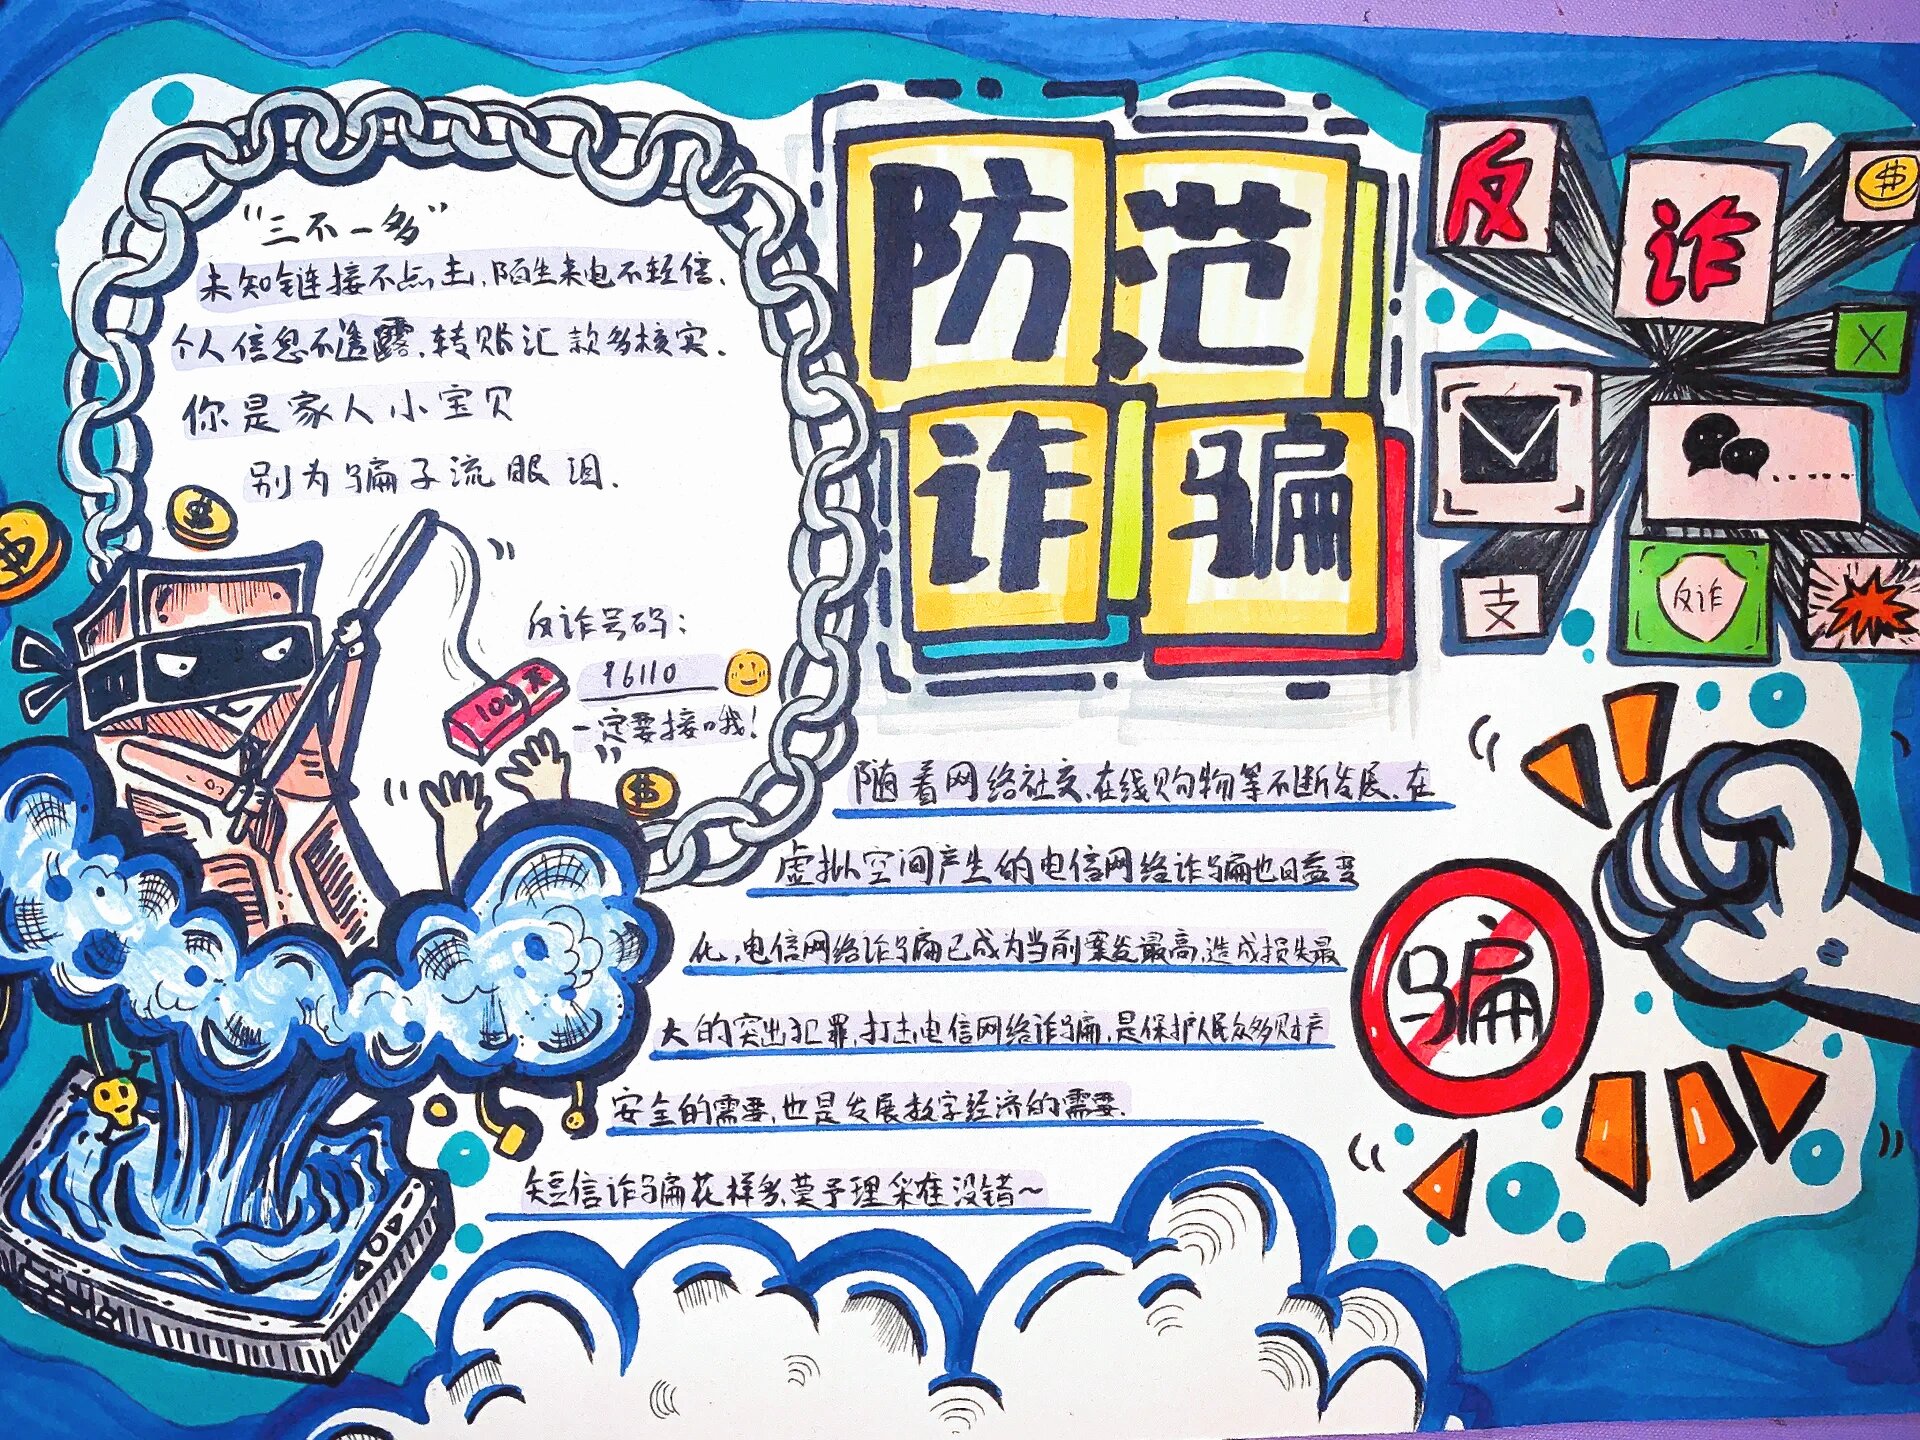 防范
诈骗
"三不一多"
未知链接不点击,陌生来电不轻信,
个人信息不透露,转账汇款多核实.
你是家人小宝贝
别为骗子流眼泪.
反诈号码:
96110
一定要接哦!
100天
反
诈
$
X
支
反诈
随着网络社交,在线购物等不断发展,在
虚拟空间产生的电信网络诈骗也日益变
化,电信网络诈骗已成为当前案发最高,造成损失最
大的突出犯罪,打击电信网络诈骗,是保护人民众多财产
安全的需要,也是发展数字经济的需要.
短信诈骗花样多,莫予理采准没错~
骗
$
$
$